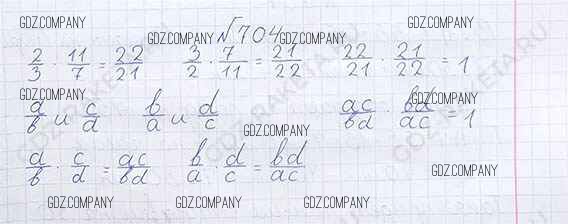 GDZ.COMPANY
GDZ.COMPANY №704 GDZ.COMPANY
2/3 · 11/7 = 22/21 3/2 · 7/11 = 21/22 22/21 · 21/22 = 1
GDZ.COMPANY GDZ.COMPANY
a/b и c/d b/a и d/c ac/bd · bd/ac = 1
GDZ.COMPANY
a/b · c/d = ac/bd b/a · d/c = bd/ac
GDZ.COMPANY
GDZ.COMPANY GDZ.COMPANY GDZ.COMPANY